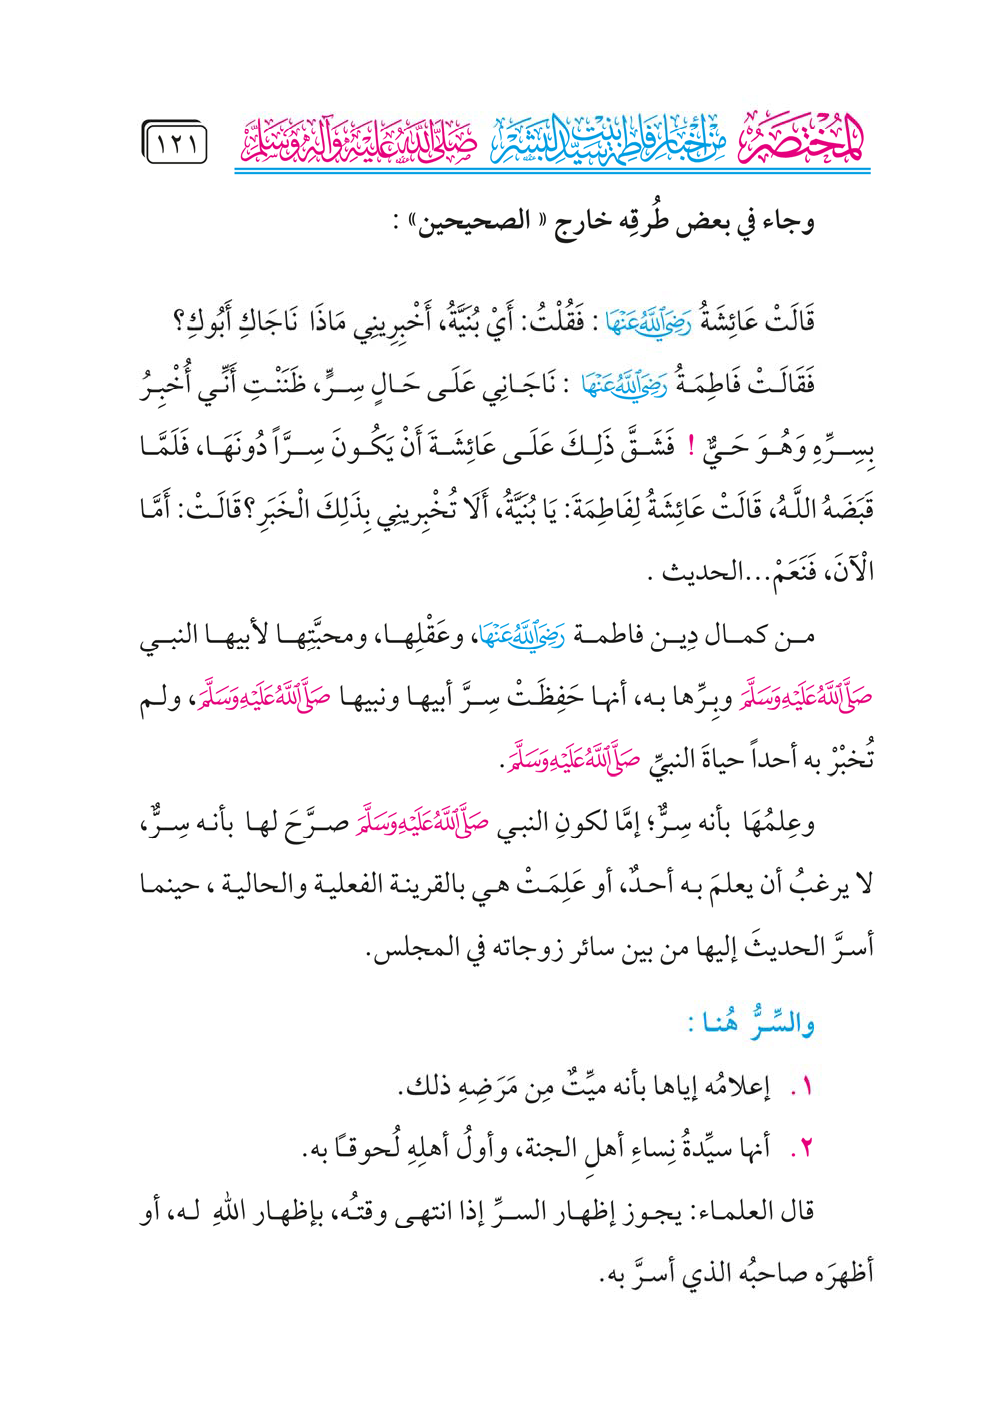 المُخْتَصَرُ مِنْ أَخْبَارِ فَاطِمَةَ بِنْتِ سَيِّدِ الْبَشَرِ صَلَّى اللَّهُ عَلَيْهِ وَآلِهِ وَسَلَّمَ ١٢١
وجاء في بعض طُرقِه خارج « الصحيحين» :
قَالَتْ عَائِشَةُ رَضِيَ اللَّهُ عَنْهَا : فَقُلْتُ: أَيْ بُنَيَّةُ، أَخْبِرِينِي مَاذَا نَاجَاكِ أَبُوكِ؟
فَقَالَتْ فَاطِمَةُ رَضِيَ اللَّهُ عَنْهَا : نَاجَانِي عَلَى حَالِ سِرٍّ، ظَنَنْتِ أَنِّي أُخْبِرُ
بِسِرِّهِ وَهُوَ حَيٌّ ! فَشَقَّ ذَلِكَ عَلَى عَائِشَةَ أَنْ يَكُونَ سِرَّاً دُونَهَا، فَلَمَّا
قَبَضَهُ اللَّهُ، قَالَتْ عَائِشَةُ لِفَاطِمَةَ: يَا بُنَيَّةُ، أَلَا تُخْبِرِينِي بِذَلِكَ الْخَبَرِ؟ قَالَتْ: أَمَّا
الْآنَ، فَنَعَمْ...الحديث .
من كمال دِين فاطمة رَضِيَ اللَّهُ عَنْهَا، وعَقْلِها، ومحبَّتِها لأبيها النبي
صَلَّى اللَّهُ عَلَيْهِ وَسَلَّمَ وبِرِّها به، أنها حَفِظَتْ سِرَّ أبيها ونبيها صَلَّى اللَّهُ عَلَيْهِ وَسَلَّمَ، ولم
تُخبْرْ به أحداً حياةَ النبيِّ صَلَّى اللَّهُ عَلَيْهِ وَسَلَّمَ.
وعِلمُهَا بأنه سِرٌّ؛ إمَّا لكونِ النبي صَلَّى اللَّهُ عَلَيْهِ وَسَلَّمَ صرَّحَ لها بأنه سِرٌّ،
لا يرغبُ أن يعلمَ به أحدٌ، أو عَلِمَتْ هي بالقرينة الفعلية والحالية ، حينما
أسرَّ الحديثَ إليها من بين سائر زوجاته في المجلس.
والسِّرُّ هُنا :
١. إعلامُه إياها بأنه ميِّتٌ مِن مَرَضِهِ ذلك.
٢. أنها سيِّدةُ نِساءِ أهلِ الجنة، وأولُ أهلِهِ لُحوقًا به.
قال العلماء: يجوز إظهار السرِّ إذا انتهى وقتُه، بإظهار اللهِ له، أو
أظهرَه صاحبُه الذي أسرَّ به.